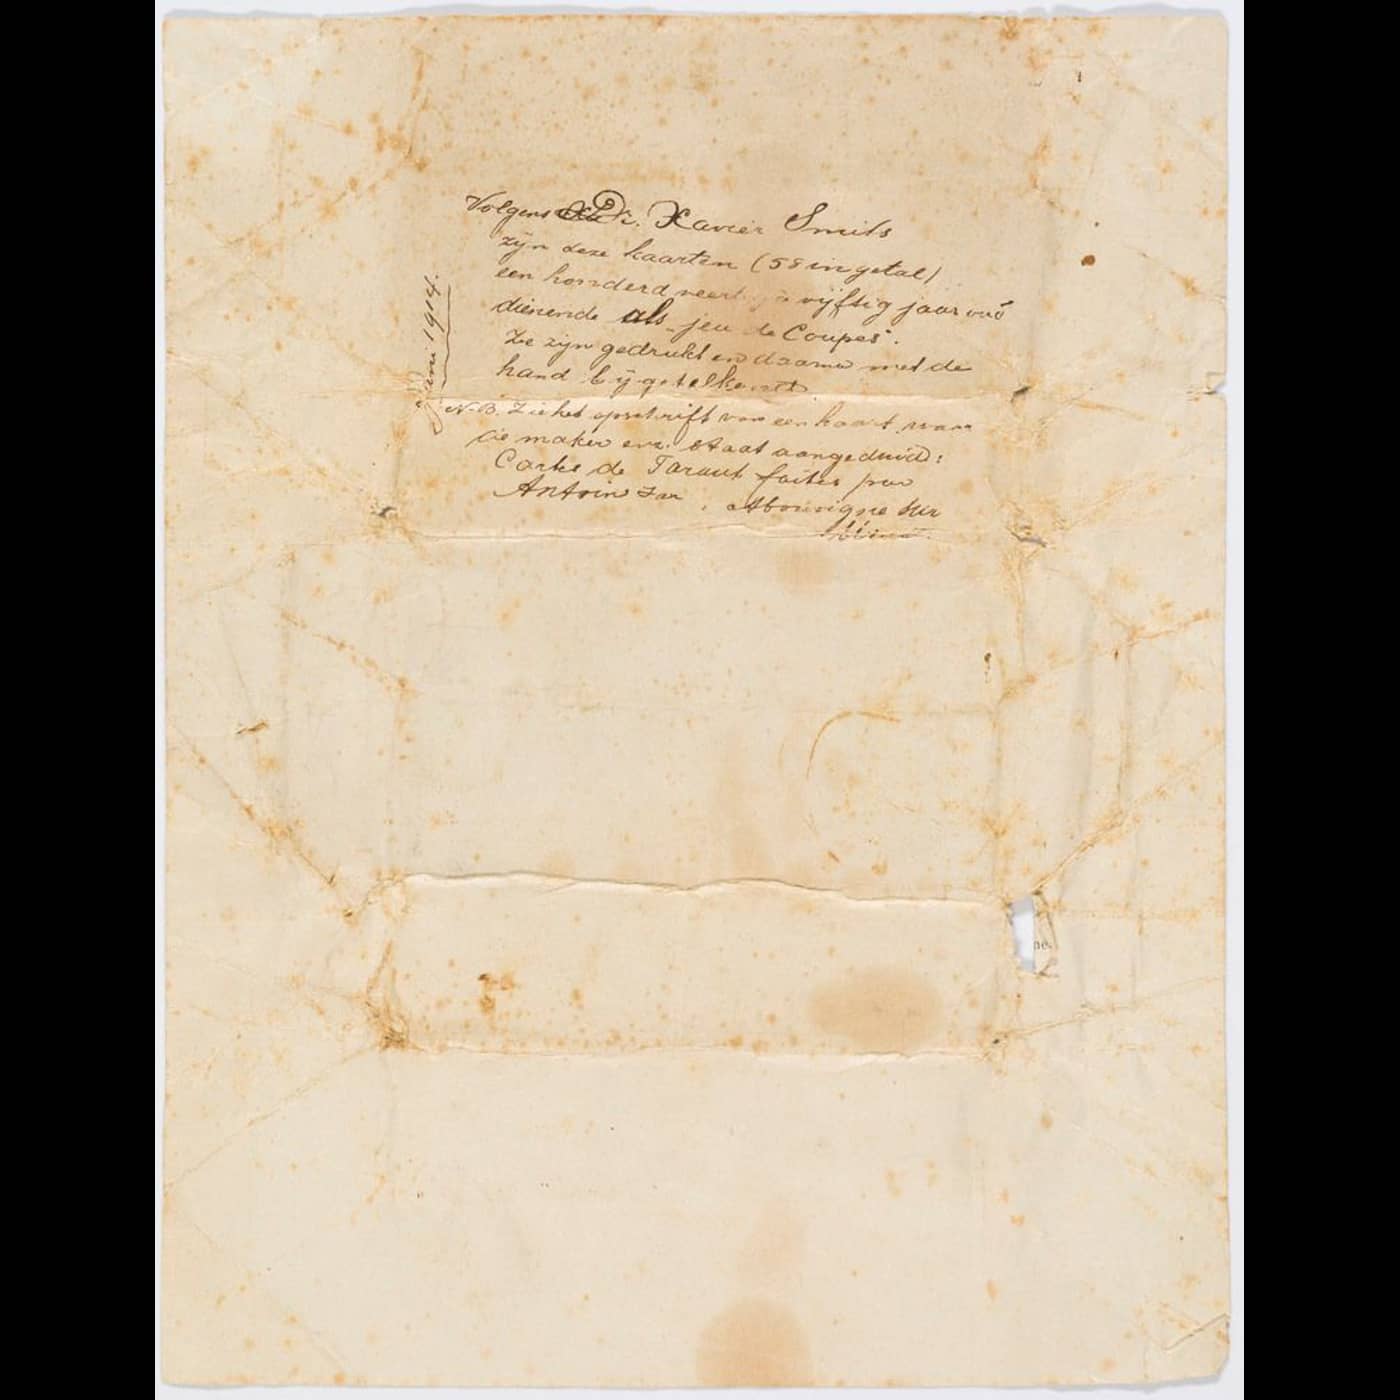 Volgens Dr. Xavier Smits
zijn deze kaarten (58 in getal)
een honderd vijftig jaar oud
dienende als "jeu de Coupes".
Ze zijn gedrukt en daarna met de
hand bijgetekend
N.B. Zie het opschrift van een kaart waar
de maker enz. staat aangeduid:
Cartes de Taraut faites par
Antoin sur
Juni 1914.
ne.